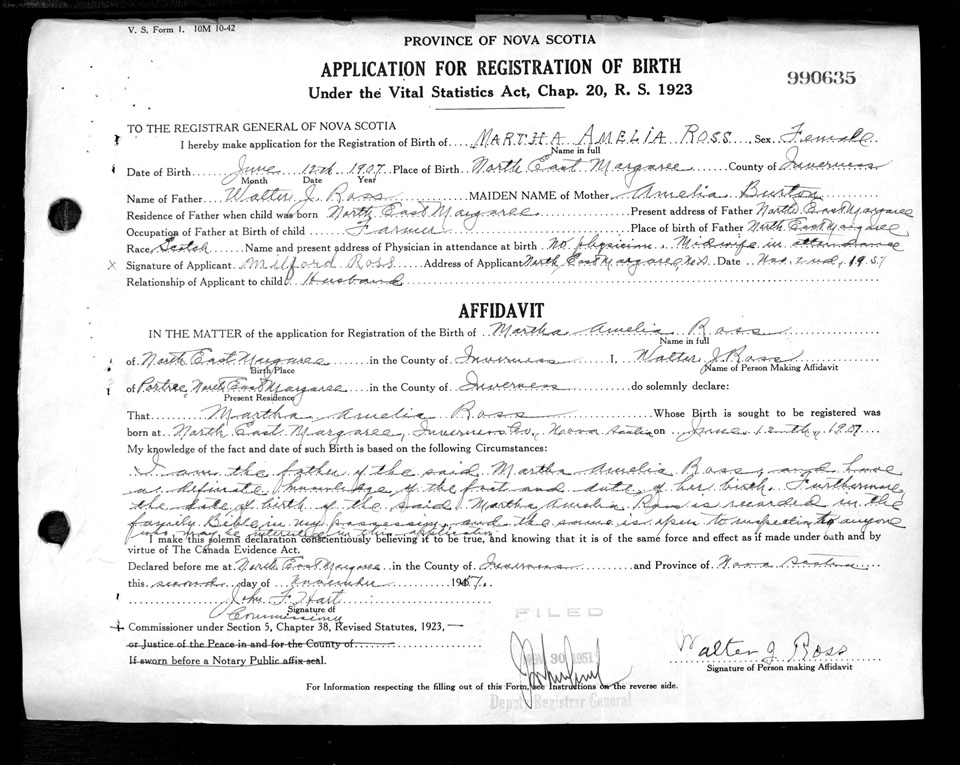 V. S. Form 1. 10M 10-42
PROVINCE OF NOVA SCOTIA
APPLICATION FOR REGISTRATION OF BIRTH
990635
Under the Vital Statistics Act, Chap. 20, R. S. 1923
TO THE REGISTRAR GENERAL OF NOVA SCOTIA
I hereby make application for the Registration of Birth of MARTHA AMELIA ROSS Sex Female
Name in full
Date of Birth June 12th 1907 Place of Birth North East Margaree County of Inverness
Month Date Year
Name of Father Walter J. Ross MAIDEN NAME of Mother Amelia Burton
Residence of Father when child was born North East Margaree Present address of Father North East Margaree
Occupation of Father at Birth of child Farmer Place of birth of Father North East Margaree
Race Scotch Name and present address of Physician in attendance at birth No physician. Midwife in attendance
X Signature of Applicant Milford Ross Address of Applicant North East Margaree, N.S. Date Nov. 2nd, 1951
Relationship of Applicant to child Husband
AFFIDAVIT
IN THE MATTER of the application for Registration of the Birth of Martha Amelia Ross
Name in full
of North East Margaree in the County of Inverness I, Walter J. Ross
Birth Place Name of Person Making Affidavit
of Portree, North East Margaree in the County of Inverness do solemnly declare:
Present Residence
That Martha Amelia Ross Whose Birth is sought to be registered was
born at North East Margaree, Inverness Co., Nova Scotia on June 12th, 1907
My knowledge of the fact and date of such Birth is based on the following Circumstances:
I am the father of the said Martha Amelia Ross, and have
a definite knowledge of the fact and date of her birth. Furthermore,
the date of birth of the said Martha Amelia Ross is recorded in the
family Bible in my possession, and the same is open to inspection to anyone
who may be interested in this application
I make this solemn declaration conscientiously believing it to be true, and knowing that it is of the same force and effect as if made under oath and by
virtue of The Canada Evidence Act.
Declared before me at North East Margaree in the County of Inverness and Province of Nova Scotia
this second day of November 1951.
John F. Hart
Signature of
Commissioner
FILED
Commissioner under Section 5, Chapter 38, Revised Statutes, 1923,
or Justice of the Peace in and for the County of
If sworn before a Notary Public affix seal.
NOV 30 1951
Walter J Ross
Signature of Person making Affidavit
For Information respecting the filling out of this Form, see Instructions on the reverse side.
Deputy Registrar General